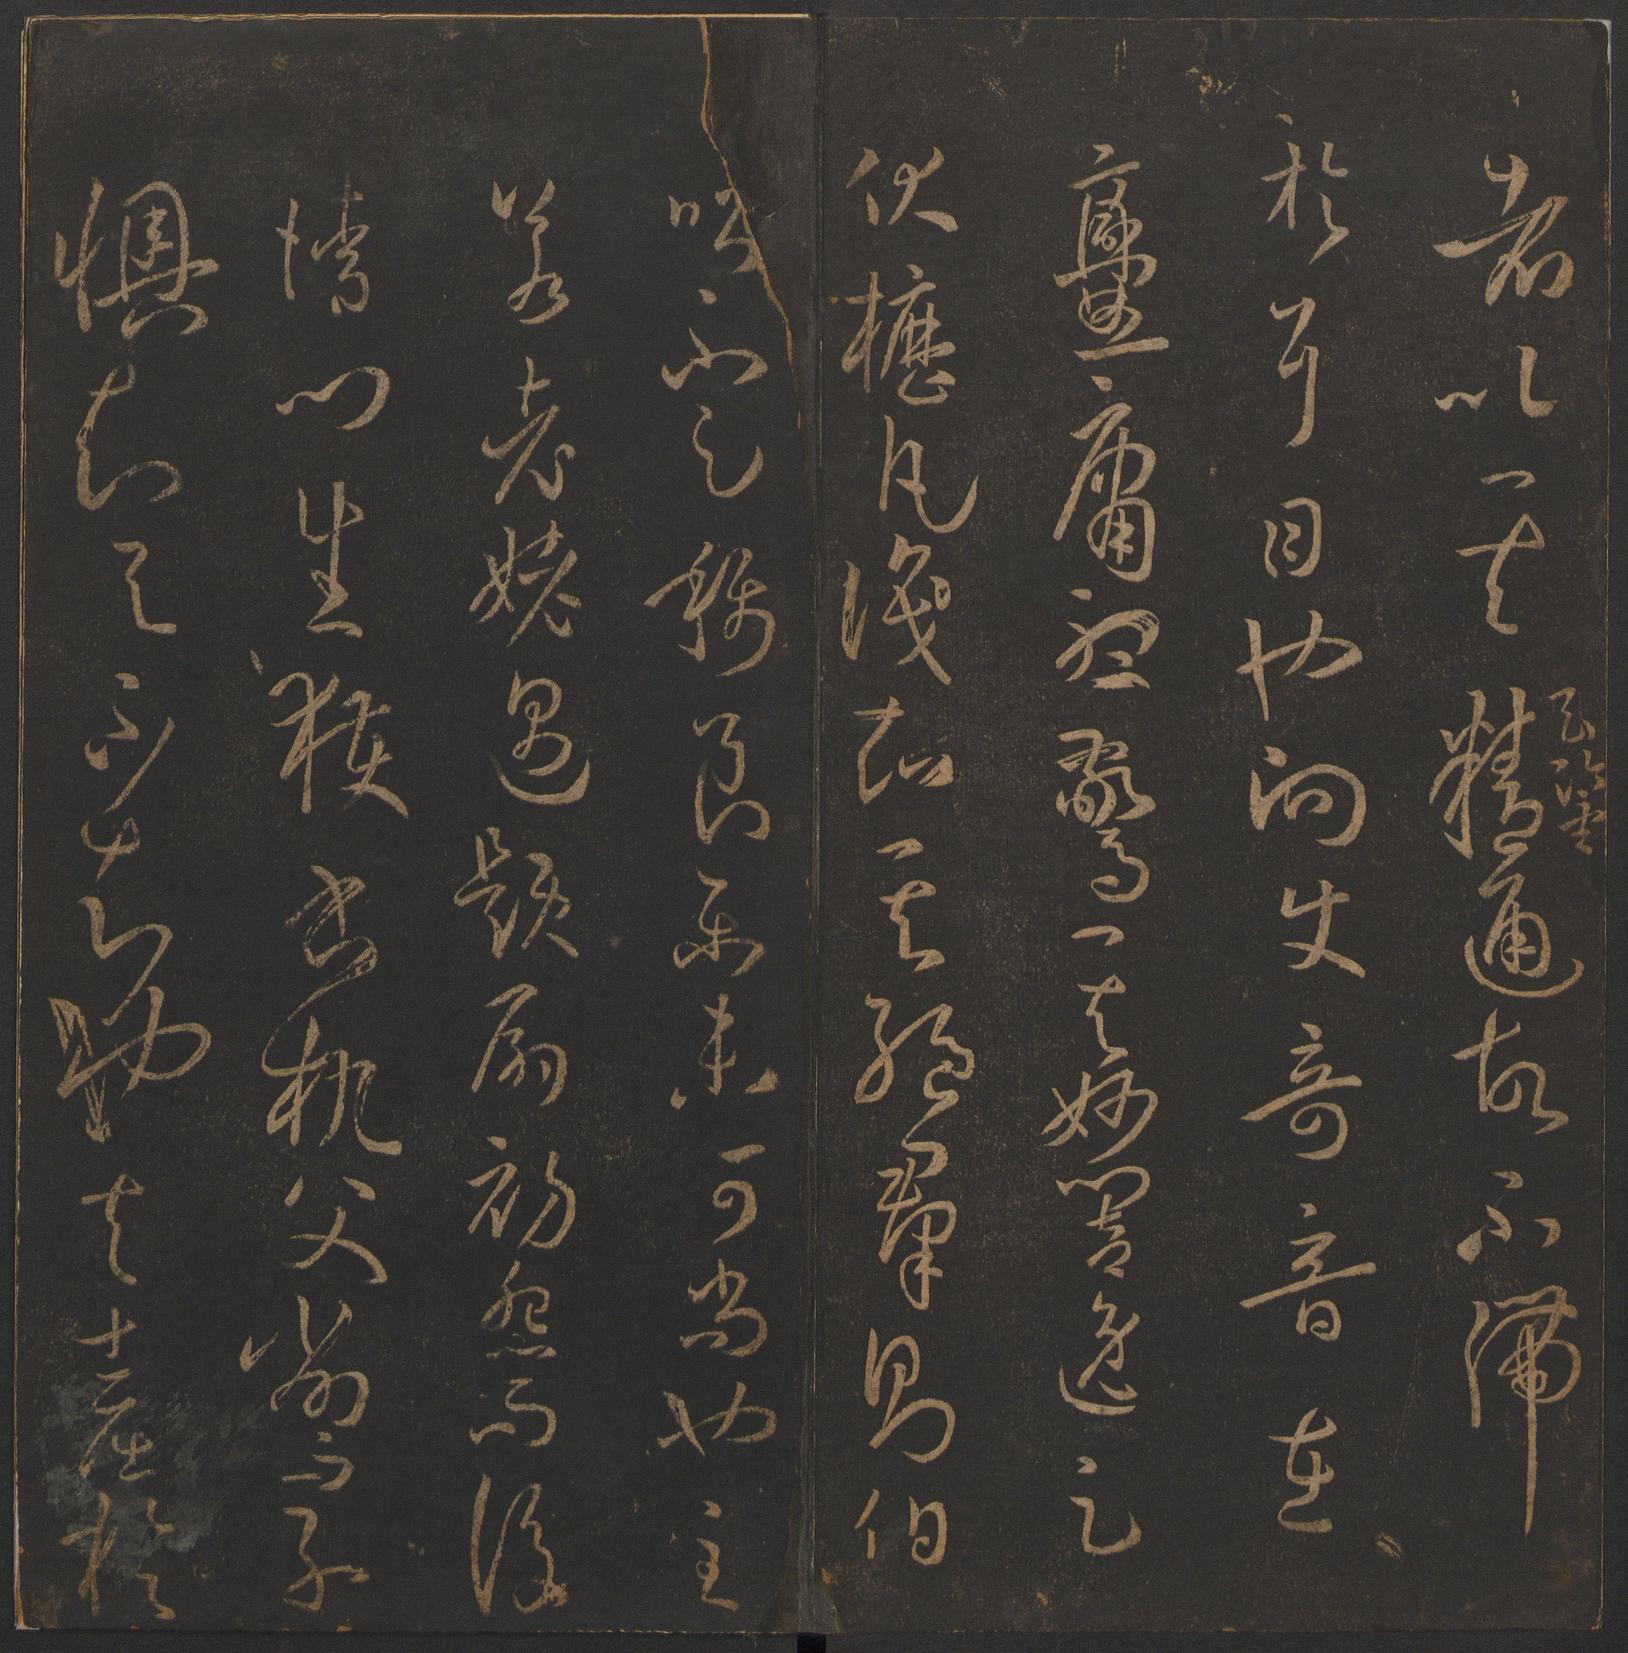 者以其玄鑒精通故不滯
於耳目也向使奇音在
爨庸聽驚其妙響逸足
伏櫪凡識知其絕羣則伯
喈不足稱良樂未可尚也至
若老姥遇題扇初怨而後
請門生獲書机父削而子
懊知與不知也夫士屈於